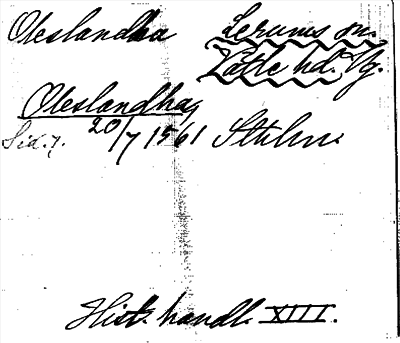 Oleslandha Lerums sn.
Vättle hd. Vg.
Oleslandha,
Sid. 7. 20/7 1561 Sthlm.
Hist. handl. XIII.